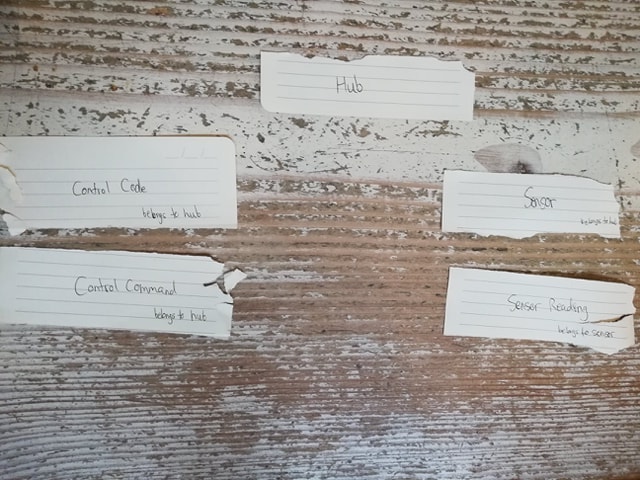 Hub
Control Code
belongs to hub
Sensor
belongs to hub
Control Command
belongs to hub
Sensor Reading
belongs to sensor